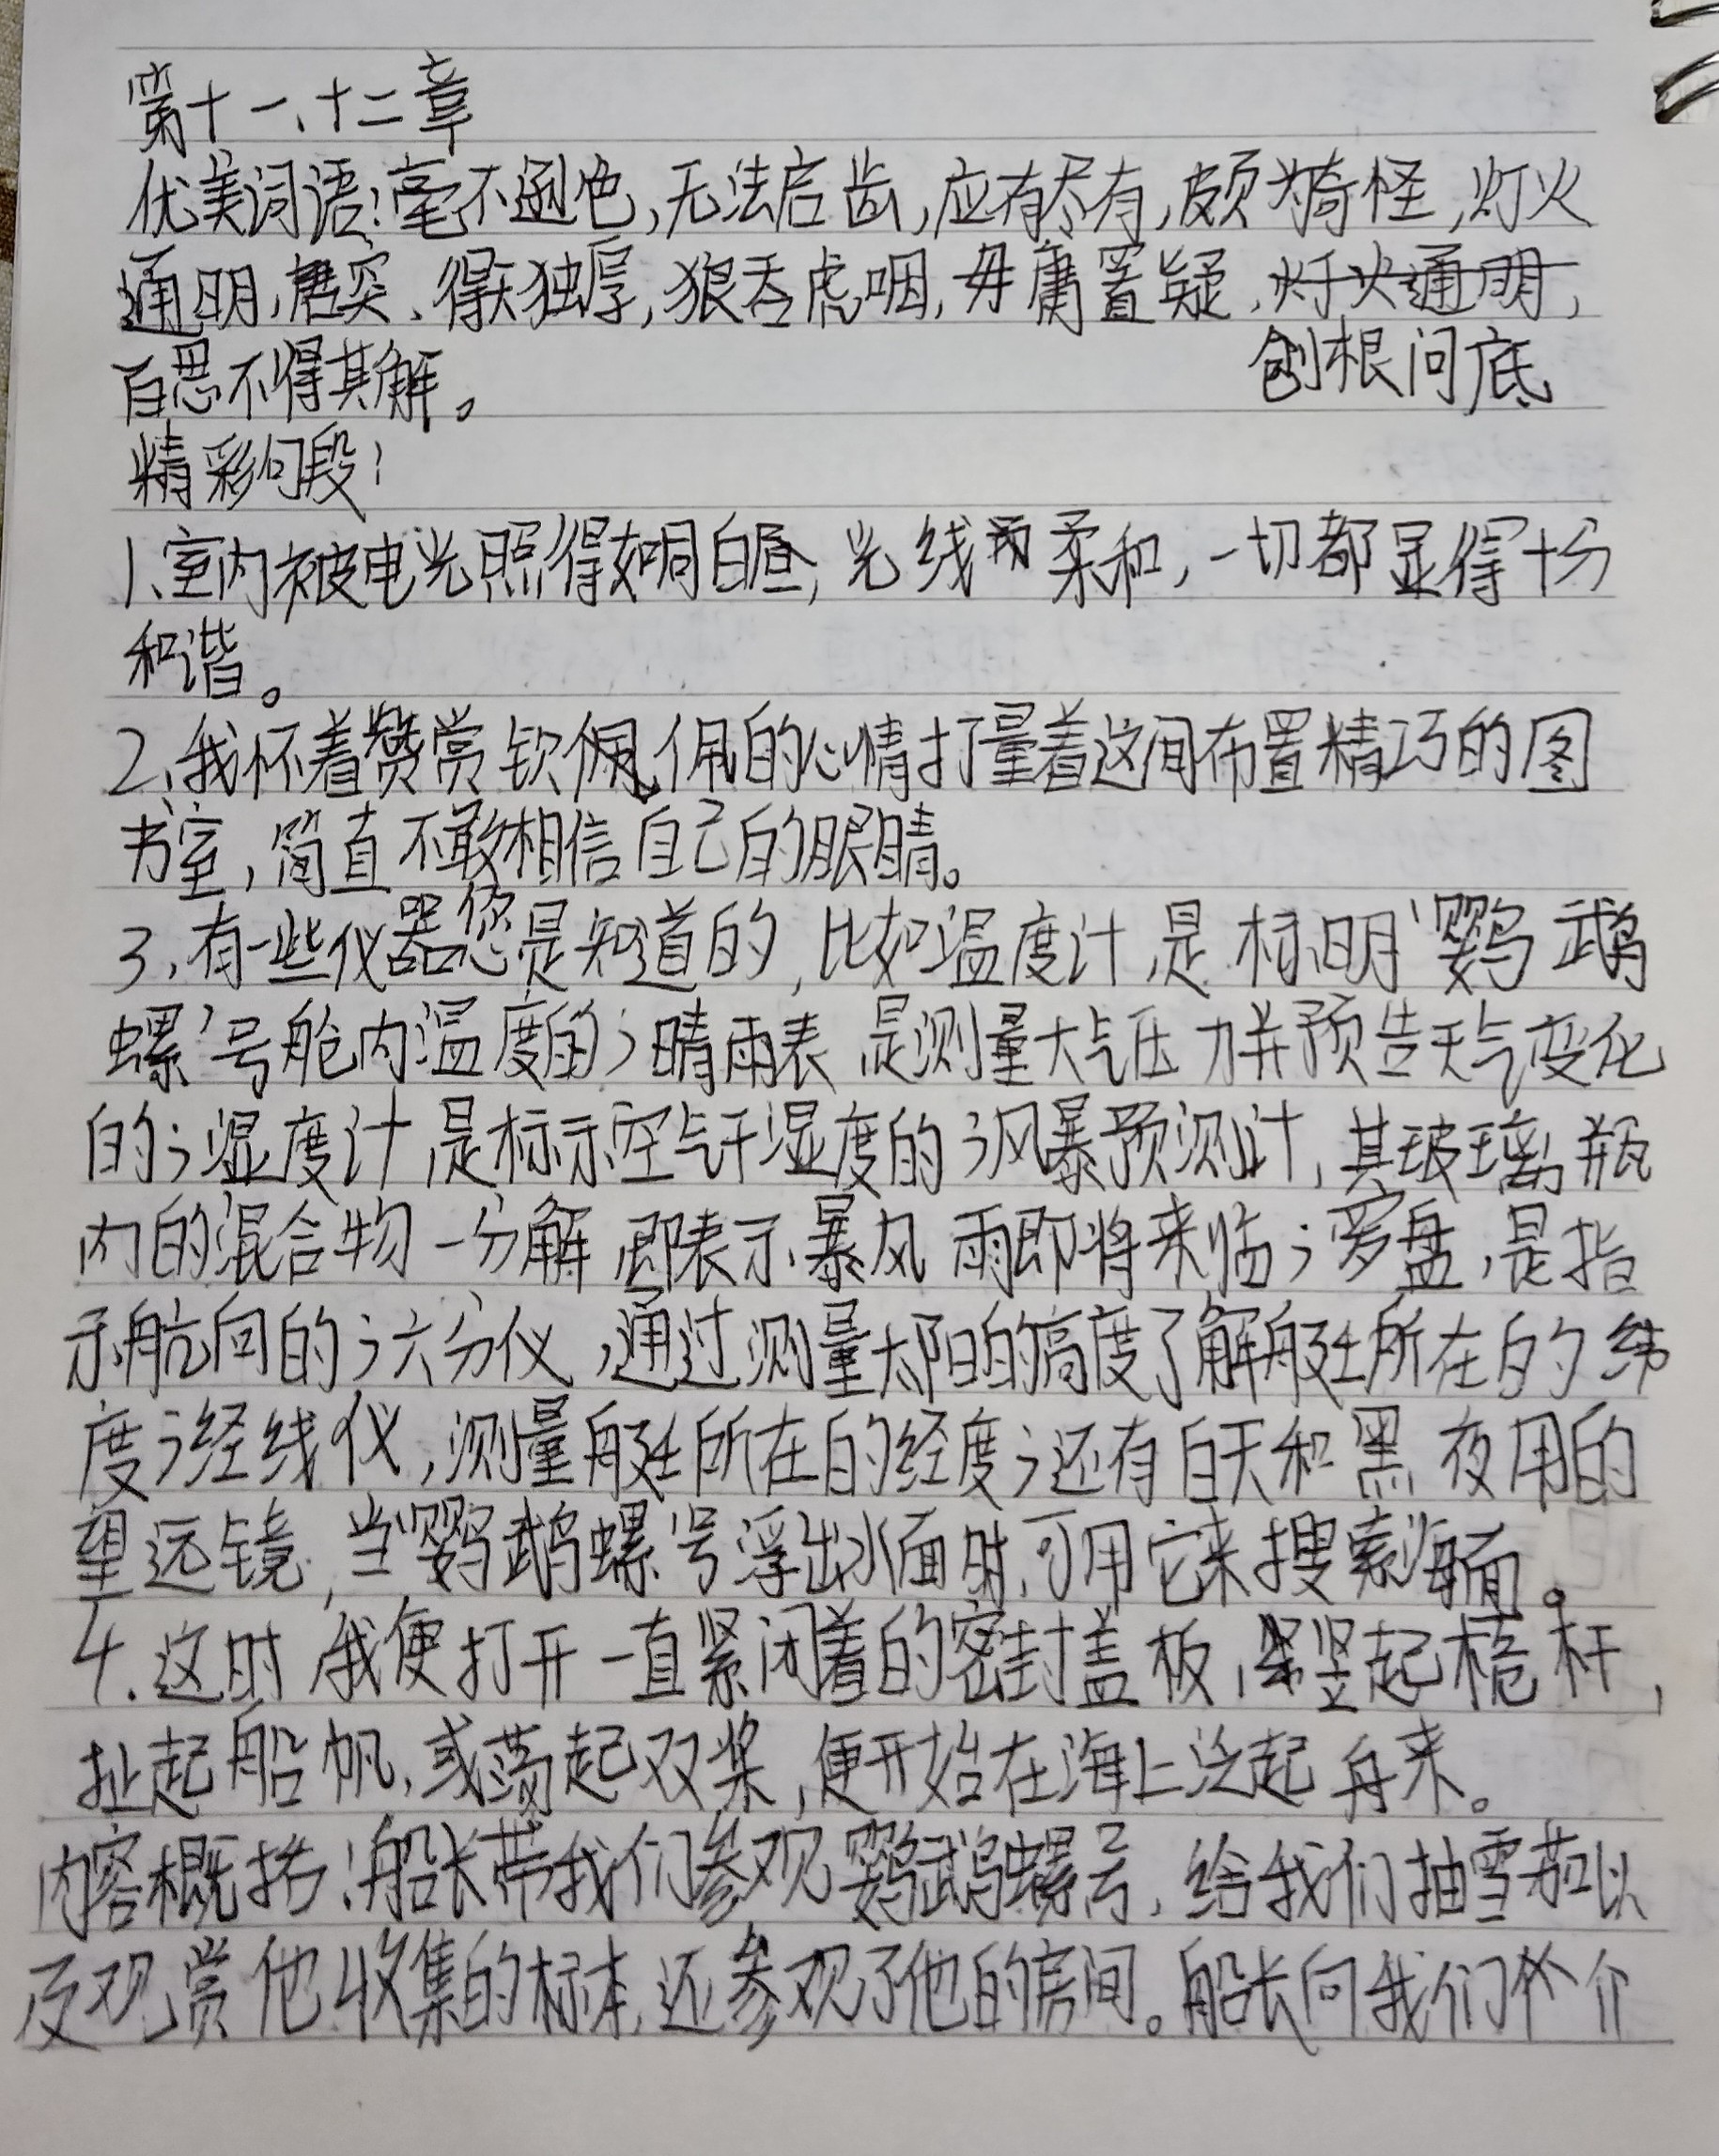 第十一、十二章
优美词语：毫不逊色，无法启齿，应有尽有，颇为奇怪，灯火
通明，唐突、得天独厚，狼吞虎咽，毋庸置疑，灯火通明，
百思不得其解。 刨根问底
精彩句段：
1、室内被电光照得如同白昼，光线柔和，一切都显得十分
和谐。
2、我怀着赞赏钦佩的心情打量着这间布置精巧的图
书室，简直不敢相信自己的眼睛。
3、有一些仪器您是知道的，比如温度计，是标明'鹦鹉
螺'号舱内温度的；晴雨表，是测量大气压力并预告天气变化
的；湿度计，是标示空气干湿度的；风暴预测计，其玻璃瓶
内的混合物一分解，即表示暴风雨即将来临；罗盘，是指
示航向的；六分仪，通过测量太阳的高度了解艇所在的纬
度；经线仪，测量艇所在的经度；还有白天和黑夜用的
望远镜，当'鹦鹉螺'号浮出水面时，可用它来搜索海面。
4.这时，我便打开一直紧闭着的密封盖板，竖起桅杆，
扯起船帆，或荡起双桨，便开始在海上泛起舟来。
内容概括：船长带我们参观鹦鹉螺号，给我们抽雪茄以
及观赏他收集的标本，还参观了他的房间。船长向我们介